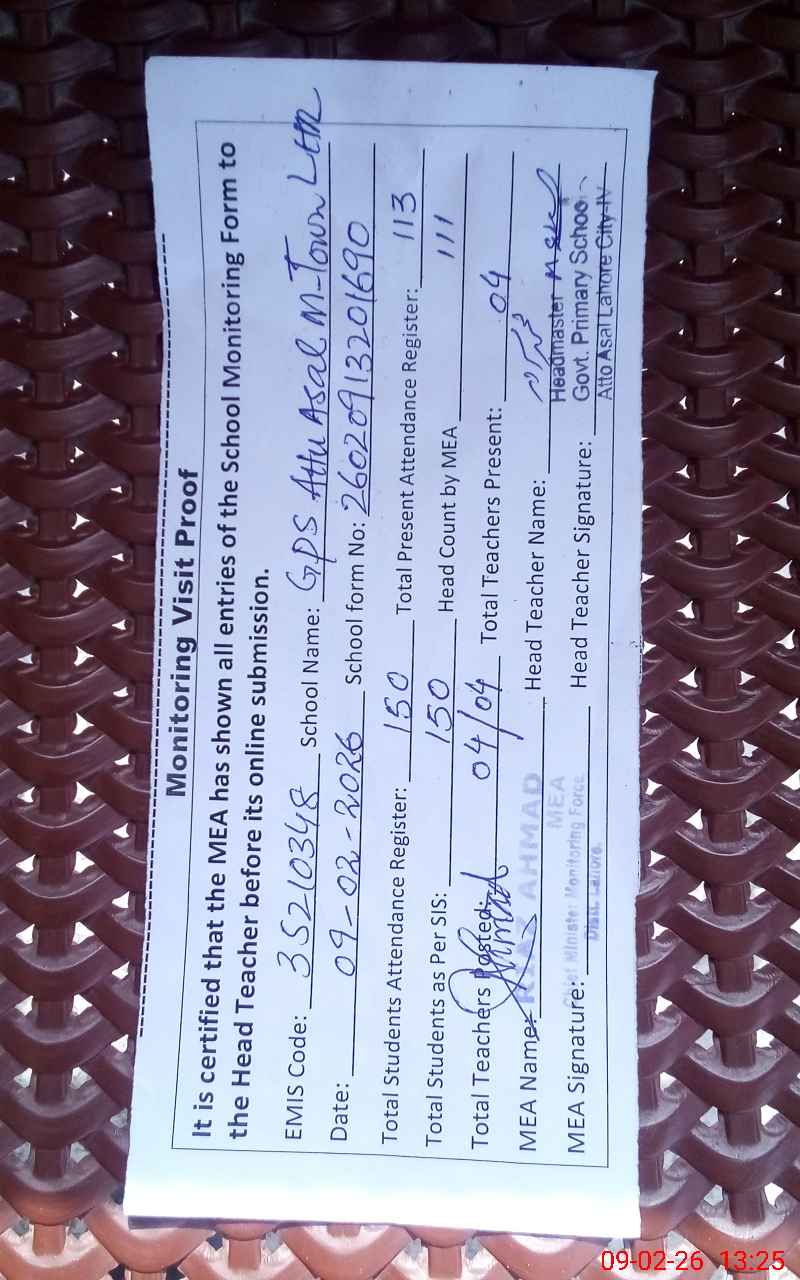 Monitoring Visit Proof
It is certified that the MEA has shown all entries of the School Monitoring Form to
the Head Teacher before its online submission.
EMIS Code: 35210348 School Name: GPS Attu Asal M-Town LHR
Date: 09-02-2026 School form No: 26020913201690
Total Students Attendance Register: 150 Total Present Attendance Register: 113
Total Students as Per SIS: 150 Head Count by MEA 111
Total Teachers Posted: 04/04 Total Teachers Present: 04
MEA Name: RIAZ AHMAD Head Teacher Name:
MEA
Headmaster
MEA Signature: Head Teacher Signature:
Chief Minister Monitoring Force
Distt. Lahore.
Govt. Primary School
Atto Asal Lahore City-IV
09-02-26 13:25